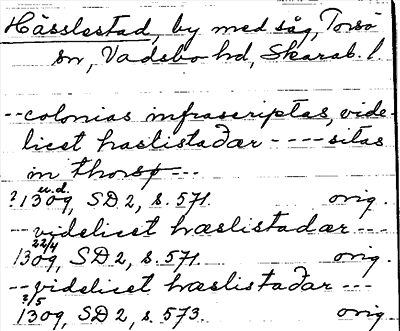 Hässlestad, by med såg, Torsö
sn, Vadsbo hd, Skarab. l.
--colonias infrascriptas, vide-
licet haslistaðær ---- sitas
in thorsø ---
u.d.
?1309, SD 2, s. 571. orig.
-- videlicet hæslistadær ---
22/4
1309, SD 2, s. 571. orig.
-- videlicet hæslistaðær ---
2/5
1309, SD 2, s. 573. orig.